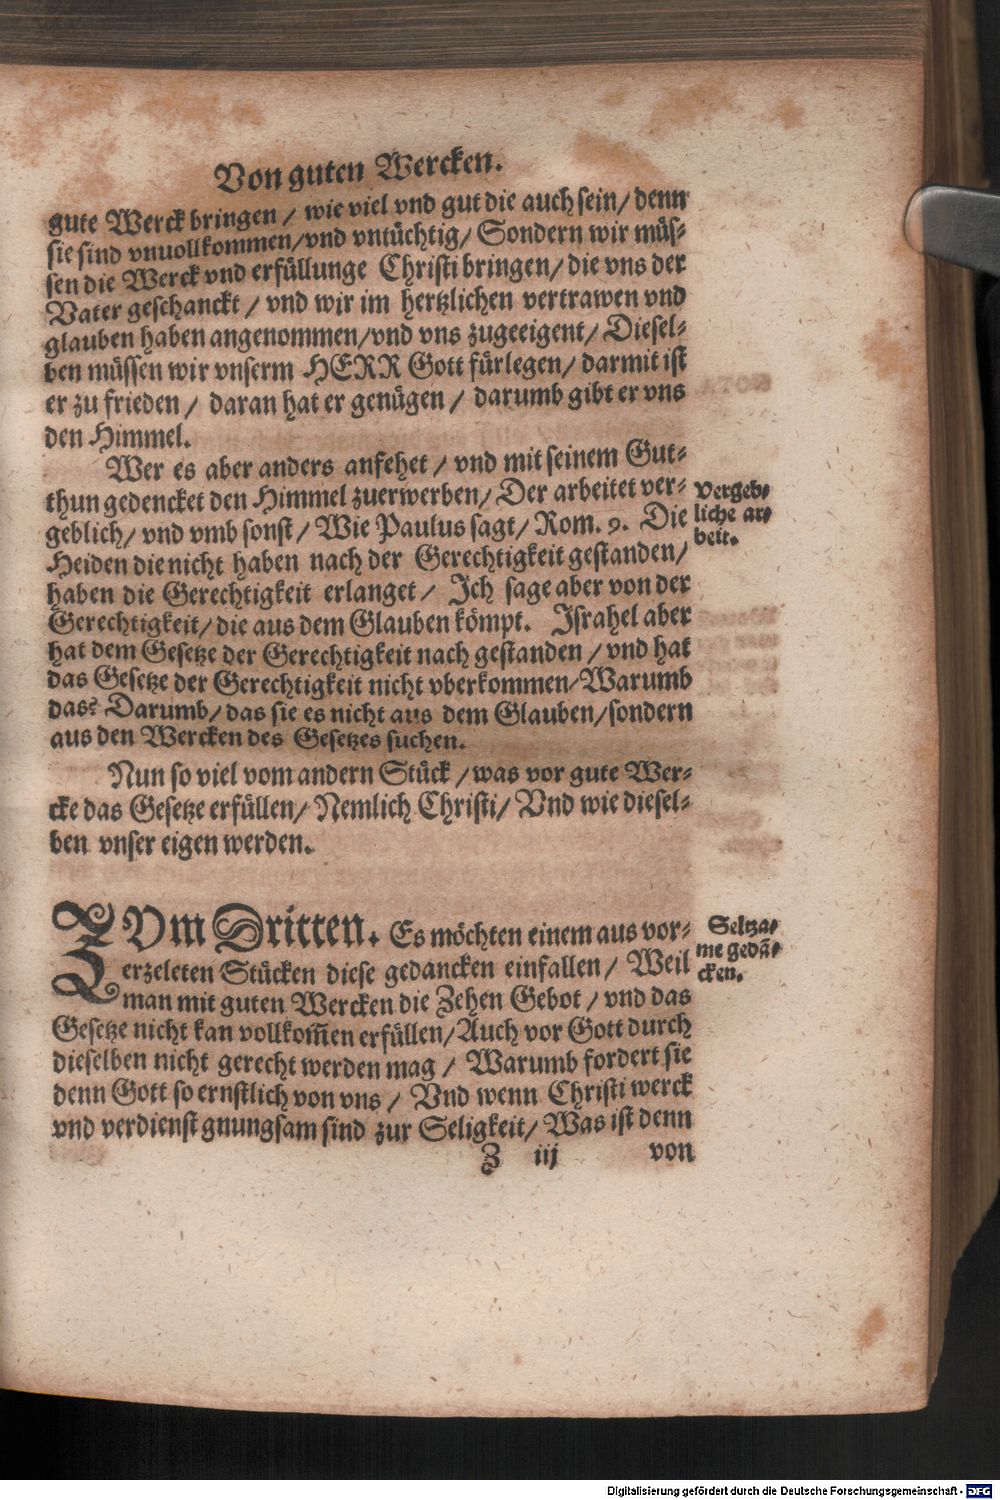 Von guten Wercken.
gute Werck bringen / wie viel vnd gut die auch sein / denn
sie sind vnuollkommen / vnd vntüchtig / Sondern wir müs-
sen die Werck vnd erfüllunge Christi bringen / die vns der
Vater geschanckt / vnd wir im hertzlichen vertrawen vnd
glauben haben angenommen / vnd vns zugeeigent / Diesel-
ben müssen wir vnserm HERR Gott fürlegen / darmit ist
er zu frieden / daran hat er genügen / darumb gibt er vns
den Himmel.
Wer es aber anders anfehet / vnd mit seinem Gut-
thun gedencket den Himmel zuerwerben / Der arbeitet ver-
geblich / vnd vmb sonst / Wie Paulus sagt / Rom. 9. Die
Heiden die nicht haben nach der Gerechtigkeit gestanden /
haben die Gerechtigkeit erlanget / Ich sage aber von der
Gerechtigkeit / die aus dem Glauben kömpt. Israhel aber
hat dem Gesetze der Gerechtigkeit nach gestanden / vnd hat
das Gesetze der Gerechtigkeit nicht vberkommen / Warumb
das? Darumb / das sie es nicht aus dem Glauben / sondern
aus den Wercken des Gesetzes suchen.
Vergeb-
liche ar-
beit.
Nun so viel vom andern Stück / was vor gute Wer-
cke das Gesetze erfüllen / Nemlich Christi / Vnd wie diesel-
ben vnser eigen werden.
ZVm Dritten. Es möchten einem aus vor-
erzeleten Stücken diese gedancken einfallen / Weil
man mit guten Wercken die Zehen Gebot / vnd das
Gesetze nicht kan vollkom̃en erfüllen / Auch vor Gott durch
dieselben nicht gerecht werden mag / Warumb fordert sie
denn Gott so ernstlich von vns / Vnd wenn Christi werck
vnd verdienst gnungsam sind zur Seligkeit / Was ist denn
Seltza-
me gedã-
cken.
Z iij von
Digitalisierung gefördert durch die Deutsche Forschungsgemeinschaft - DFG